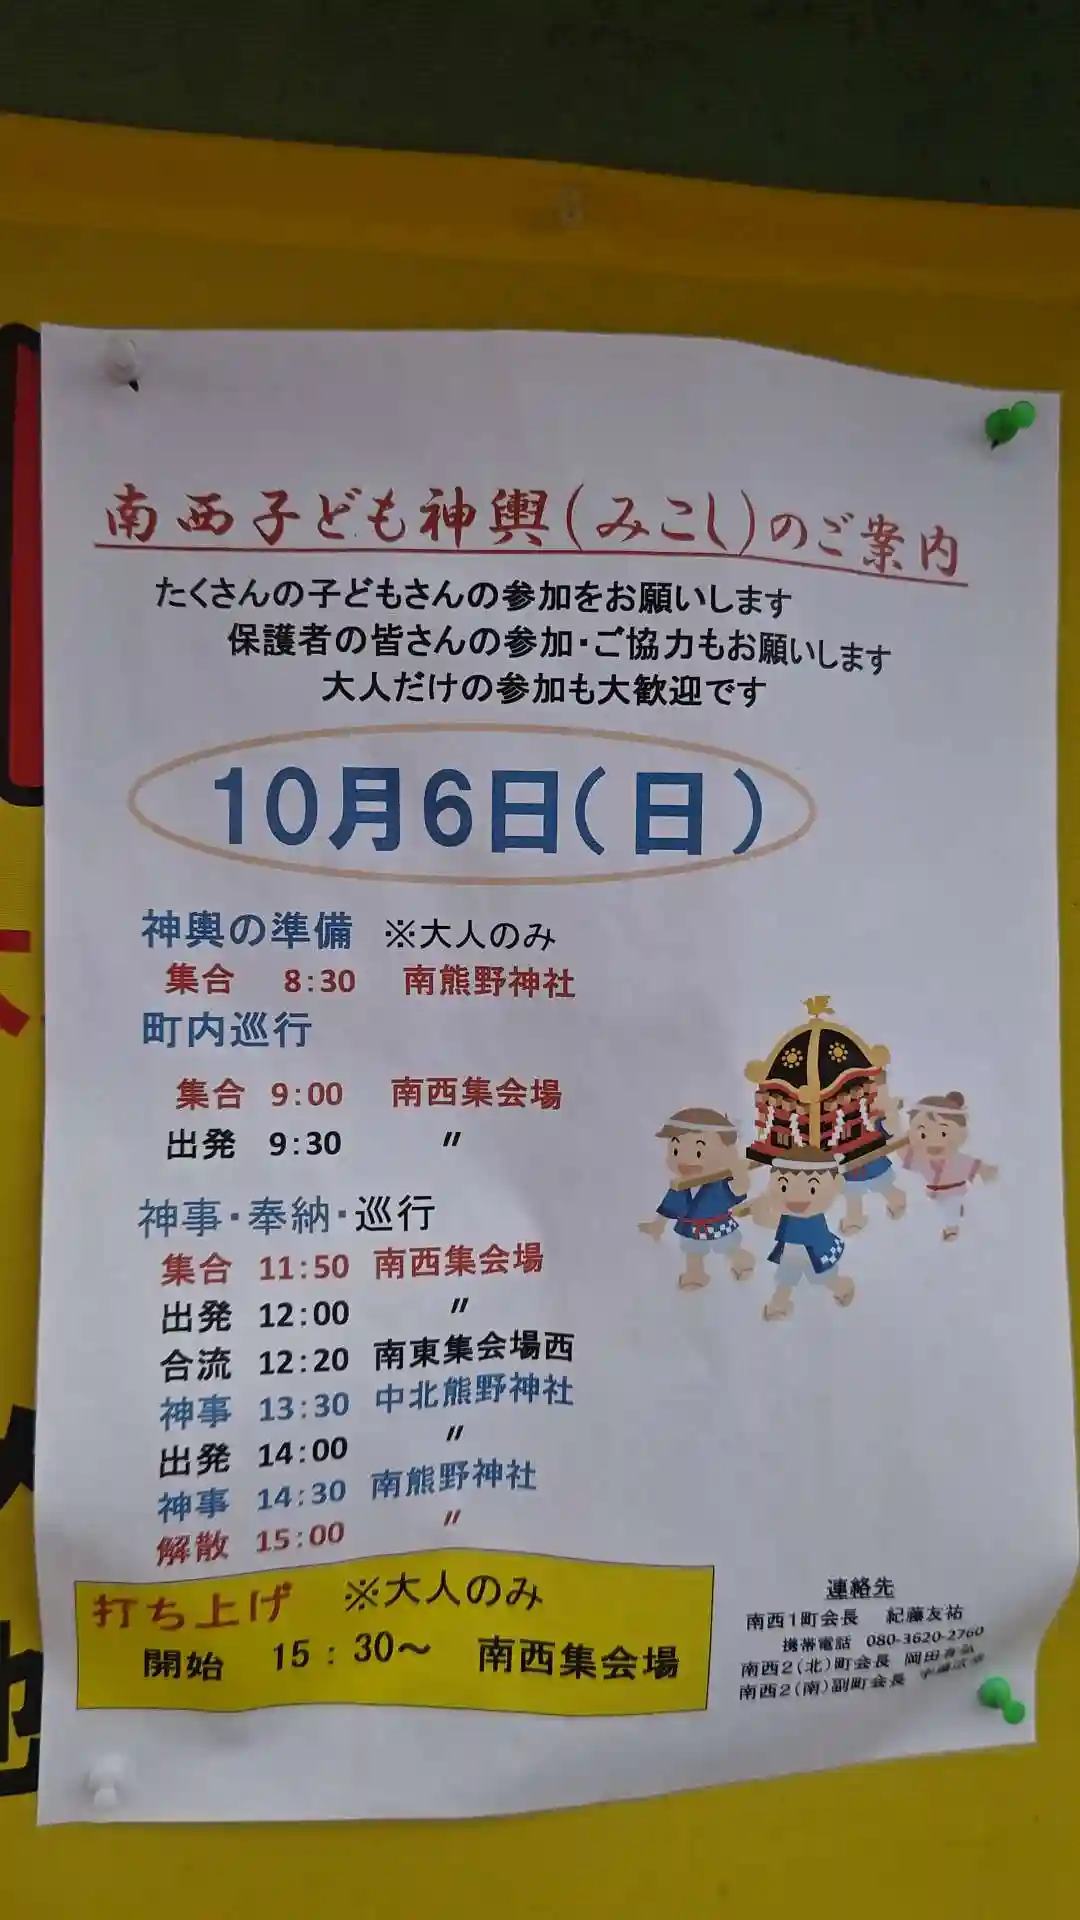 南西子ども神輿(みこし)のご案内
たくさんの子どもさんの参加をお願いします
保護者の皆さんの参加・ご協力もお願いします
大人だけの参加も大歓迎です
10月6日(日)
神輿の準備 ※大人のみ
集合 8:30 南熊野神社
町内巡行
集合 9:00 南西集会場
出発 9:30 〃
神事・奉納・巡行
集合 11:50 南西集会場
出発 12:00 〃
合流 12:20 南東集会場西
神事 13:30 中北熊野神社
出発 14:00 〃
神事 14:30 南熊野神社
解散 15:00 〃
打ち上げ ※大人のみ
開始 15:30〜 南西集会場
連絡先
南西1町会長 紀藤友祐
携帯電話 080-3620-2760
南西2(北)町会長 岡田
南西2(南)副町会長